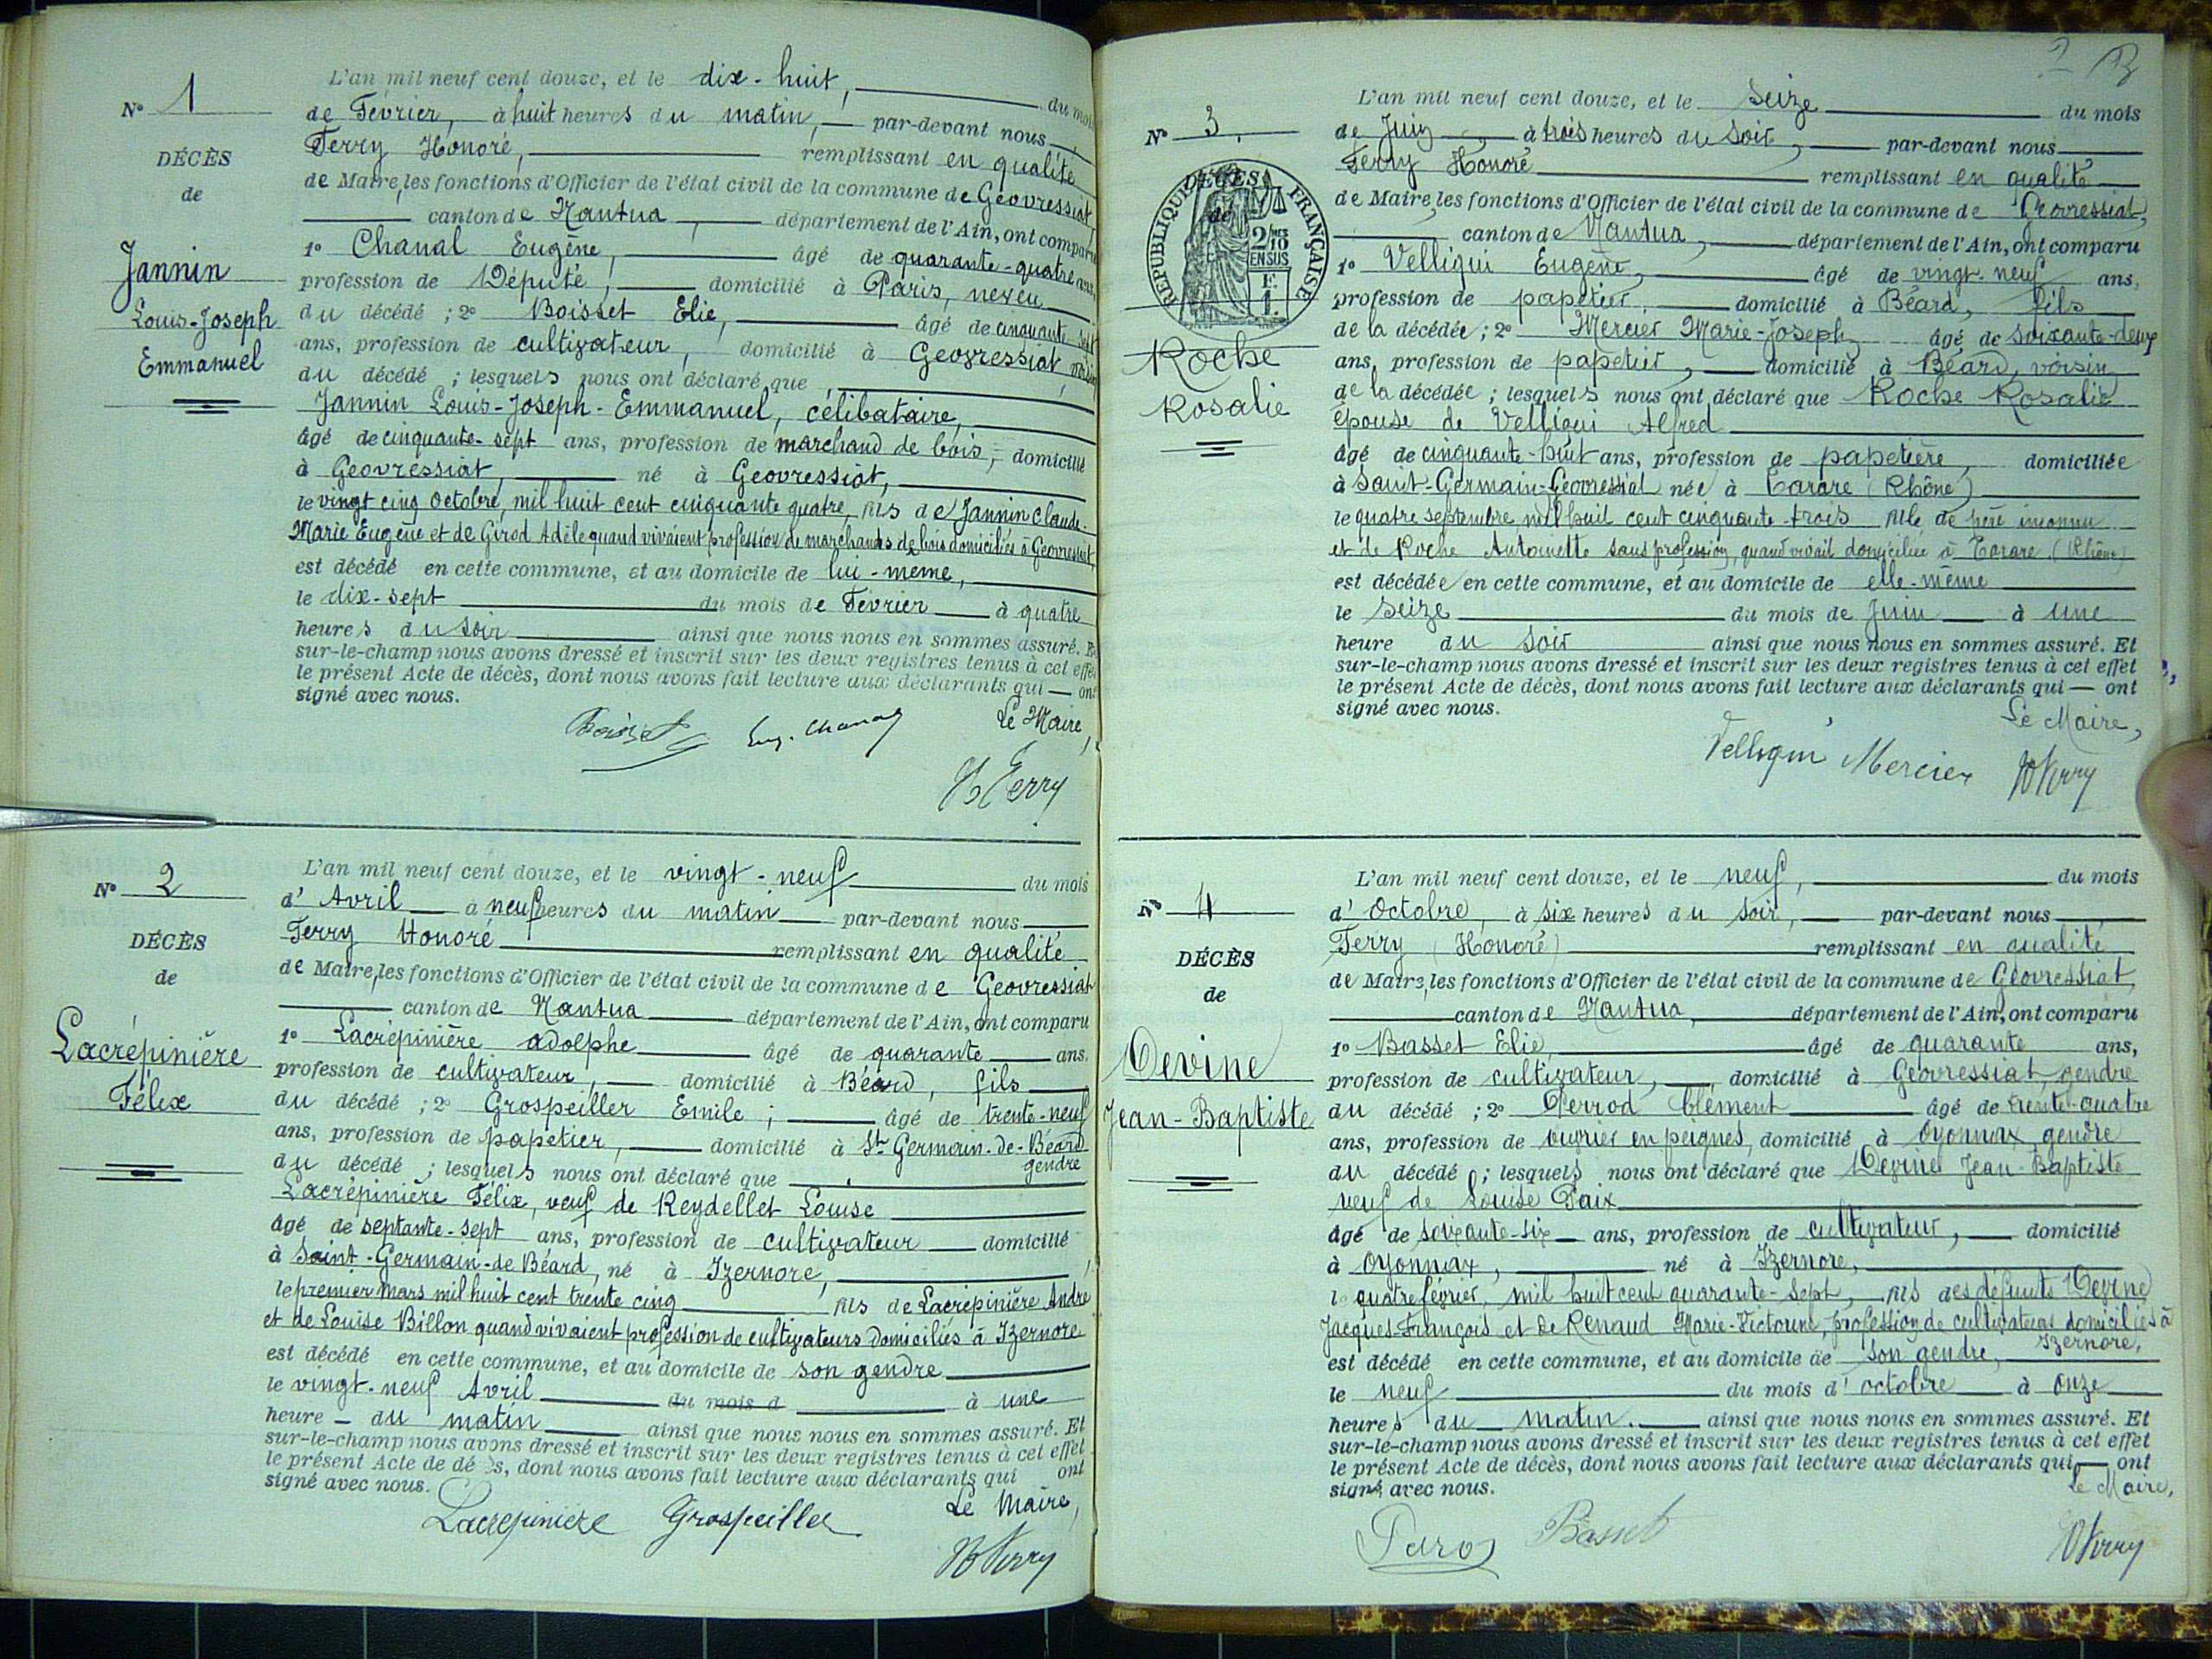 L'an mil neuf cent douze, et le dix-huit, du mois
N° 1
de Février, à huit heures du matin, par-devant nous
Ferry Honoré, remplissant en qualité
DÉCÈS
de Maire, les fonctions d'Officier de l'état civil de la commune de Geovressiat,
de
canton de Nantua, département de l'Ain, ont comparu
1° Chanal Eugène, âgé de quarante-quatre ans,
Jannin
profession de Député, domicilié à Paris, neveu
Louis-Joseph
du décédé ; 2° Boisset Elie, âgé de cinquante
Emmanuel
ans, profession de cultivateur, domicilié à Geovressiat, voisin
du décédé ; lesquels nous ont déclaré que
Jannin Louis-Joseph-Emmanuel, célibataire,
âgé de cinquante-sept ans, profession de marchand de bois, domicilié
à Geovressiat, né à Geovressiat,
le vingt cinq octobre, mil huit cent cinquante quatre, fils de Jannin Claude-
Marie Eugène et de Girod Adèle quand vivaient profession de marchands de bois domiciliés à Geovressiat,
est décédé en cette commune, et au domicile de lui-meme,
le dix-sept du mois de Février à quatre
heures du soir ainsi que nous nous en sommes assuré. Et
sur-le-champ nous avons dressé et inscrit sur les deux registres tenus à cet effet
le présent Acte de décès, dont nous avons fait lecture aux déclarants qui ont
signé avec nous.
Le Maire,
Boisset Eug. Chanal
H Ferry
L'an mil neuf cent douze, et le vingt-neuf du mois
N° 2
d'Avril à neuf heures du matin par-devant nous
Ferry Honoré remplissant en qualité
DÉCÈS
de Maire, les fonctions d'Officier de l'état civil de la commune de Geovressiat
de
canton de Nantua département de l'Ain, ont comparu
Lacrépinière
1° Lacrépinière adolphe âgé de quarante ans.
profession de cultivateur, domicilié à Béard, fils
Félix
du décédé ; 2° Grospeiller Emile ; âgé de trente-neuf
ans, profession de papetier, domicilié à St Germain-de-Béard
gendre
du décédé ; lesquels nous ont déclaré que
Lacrépinière Félix, veuf de Reydellet Louise
âgé de septante-sept ans, profession de cultivateur domicilié
à Saint-Germain-de Béard, né à Izernore,
le premier Mars mil huit cent trente cinq fils de Lacrépinière André
et de Louise Billon quand vivaient profession de cultivateurs domiciliés à Izernore
est décédé en cette commune, et au domicile de son gendre
le vingt-neuf Avril du mois d à une
heure du matin ainsi que nous nous en sommes assuré. Et
sur-le-champ nous avons dressé et inscrit sur les deux registres tenus à cet effet
le présent Acte de décès, dont nous avons fait lecture aux déclarants qui ont
signé avec nous.
Lacrepiniere Grospeiller Le Maire,
H Ferry
2
L'an mil neuf cent douze, et le seize du mois
N° 3
de Juin, à trois heures du soir, par-devant nous
Ferry Honoré remplissant en qualité
DÉCÈS
de
RÉPUBLIQUE FRANÇAISE
2/10 EN SUS
F. 1.
de Maire, les fonctions d'Officier de l'état civil de la commune de Geovressiat,
canton de Nantua, département de l'Ain, ont comparu
1° Velliqui Eugène, âgé de vingt-neuf ans,
profession de papetier domicilié à Béard, fils
Roche
de la décédée ; 2° Mercier Marie-Joseph, âgé de soixante-deux
ans, profession de papetier, domicilié à Béard, voisin
Rosalie
de la décédée ; lesquels nous ont déclaré que Roche Rosalie
épouse de Velliqui Alfred
âgé de cinquante-huit ans, profession de papetière, domiciliée
à Saint-Germain-Geovressiat née à Tarare (Rhône)
le quatre septembre mil huit cent cinquante-trois fille de père inconnu
et de Roche Antoinette sans profession, quand vivait domiciliée à Tarare (Rhône)
est décédée en cette commune, et au domicile de elle-même
le seize du mois de Juin à une
heure du soir ainsi que nous nous en sommes assuré. Et
sur-le-champ nous avons dressé et inscrit sur les deux registres tenus à cet effet
le présent Acte de décès, dont nous avons fait lecture aux déclarants qui ont
signé avec nous.
Le Maire,
Velliqui Mercier H Ferry
L'an mil neuf cent douze, et le neuf, du mois
N° 4
d'Octobre, à six heures du soir, par-devant nous
Ferry (Honoré) remplissant en qualité
DÉCÈS
de Maire, les fonctions d'Officier de l'état civil de la commune de Géovressiat,
de
canton de Nantua, département de l'Ain, ont comparu
1° Basset Elie, âgé de quarante ans,
Devine
profession de cultivateur, domicilié à Géovressiat, gendre
Jean-Baptiste
du décédé ; 2° Perrod Clément âgé de trente-quatre
ans, profession de ouvrier en peignes, domicilié à Oyonnax, gendre
du décédé ; lesquels nous ont déclaré que Devine Jean-Baptiste
veuf de Louise Paix
âgé de soixante-six ans, profession de cultivateur, domicilié
à Oyonnax, né à Izernore,
le quatre février, mil huit cent quarante-sept, fils des défunts Devine
Jacques-François et de Renaud Marie-Victorine, profession de cultivateurs domiciliés à
Izernore,
est décédé en cette commune, et au domicile de son gendre,
le neuf du mois d'octobre à onze
heures du matin. ainsi que nous nous en sommes assuré. Et
sur-le-champ nous avons dressé et inscrit sur les deux registres tenus à cet effet
le présent Acte de décès, dont nous avons fait lecture aux déclarants qui ont
signé avec nous.
Le Maire,
Basset
H Ferry